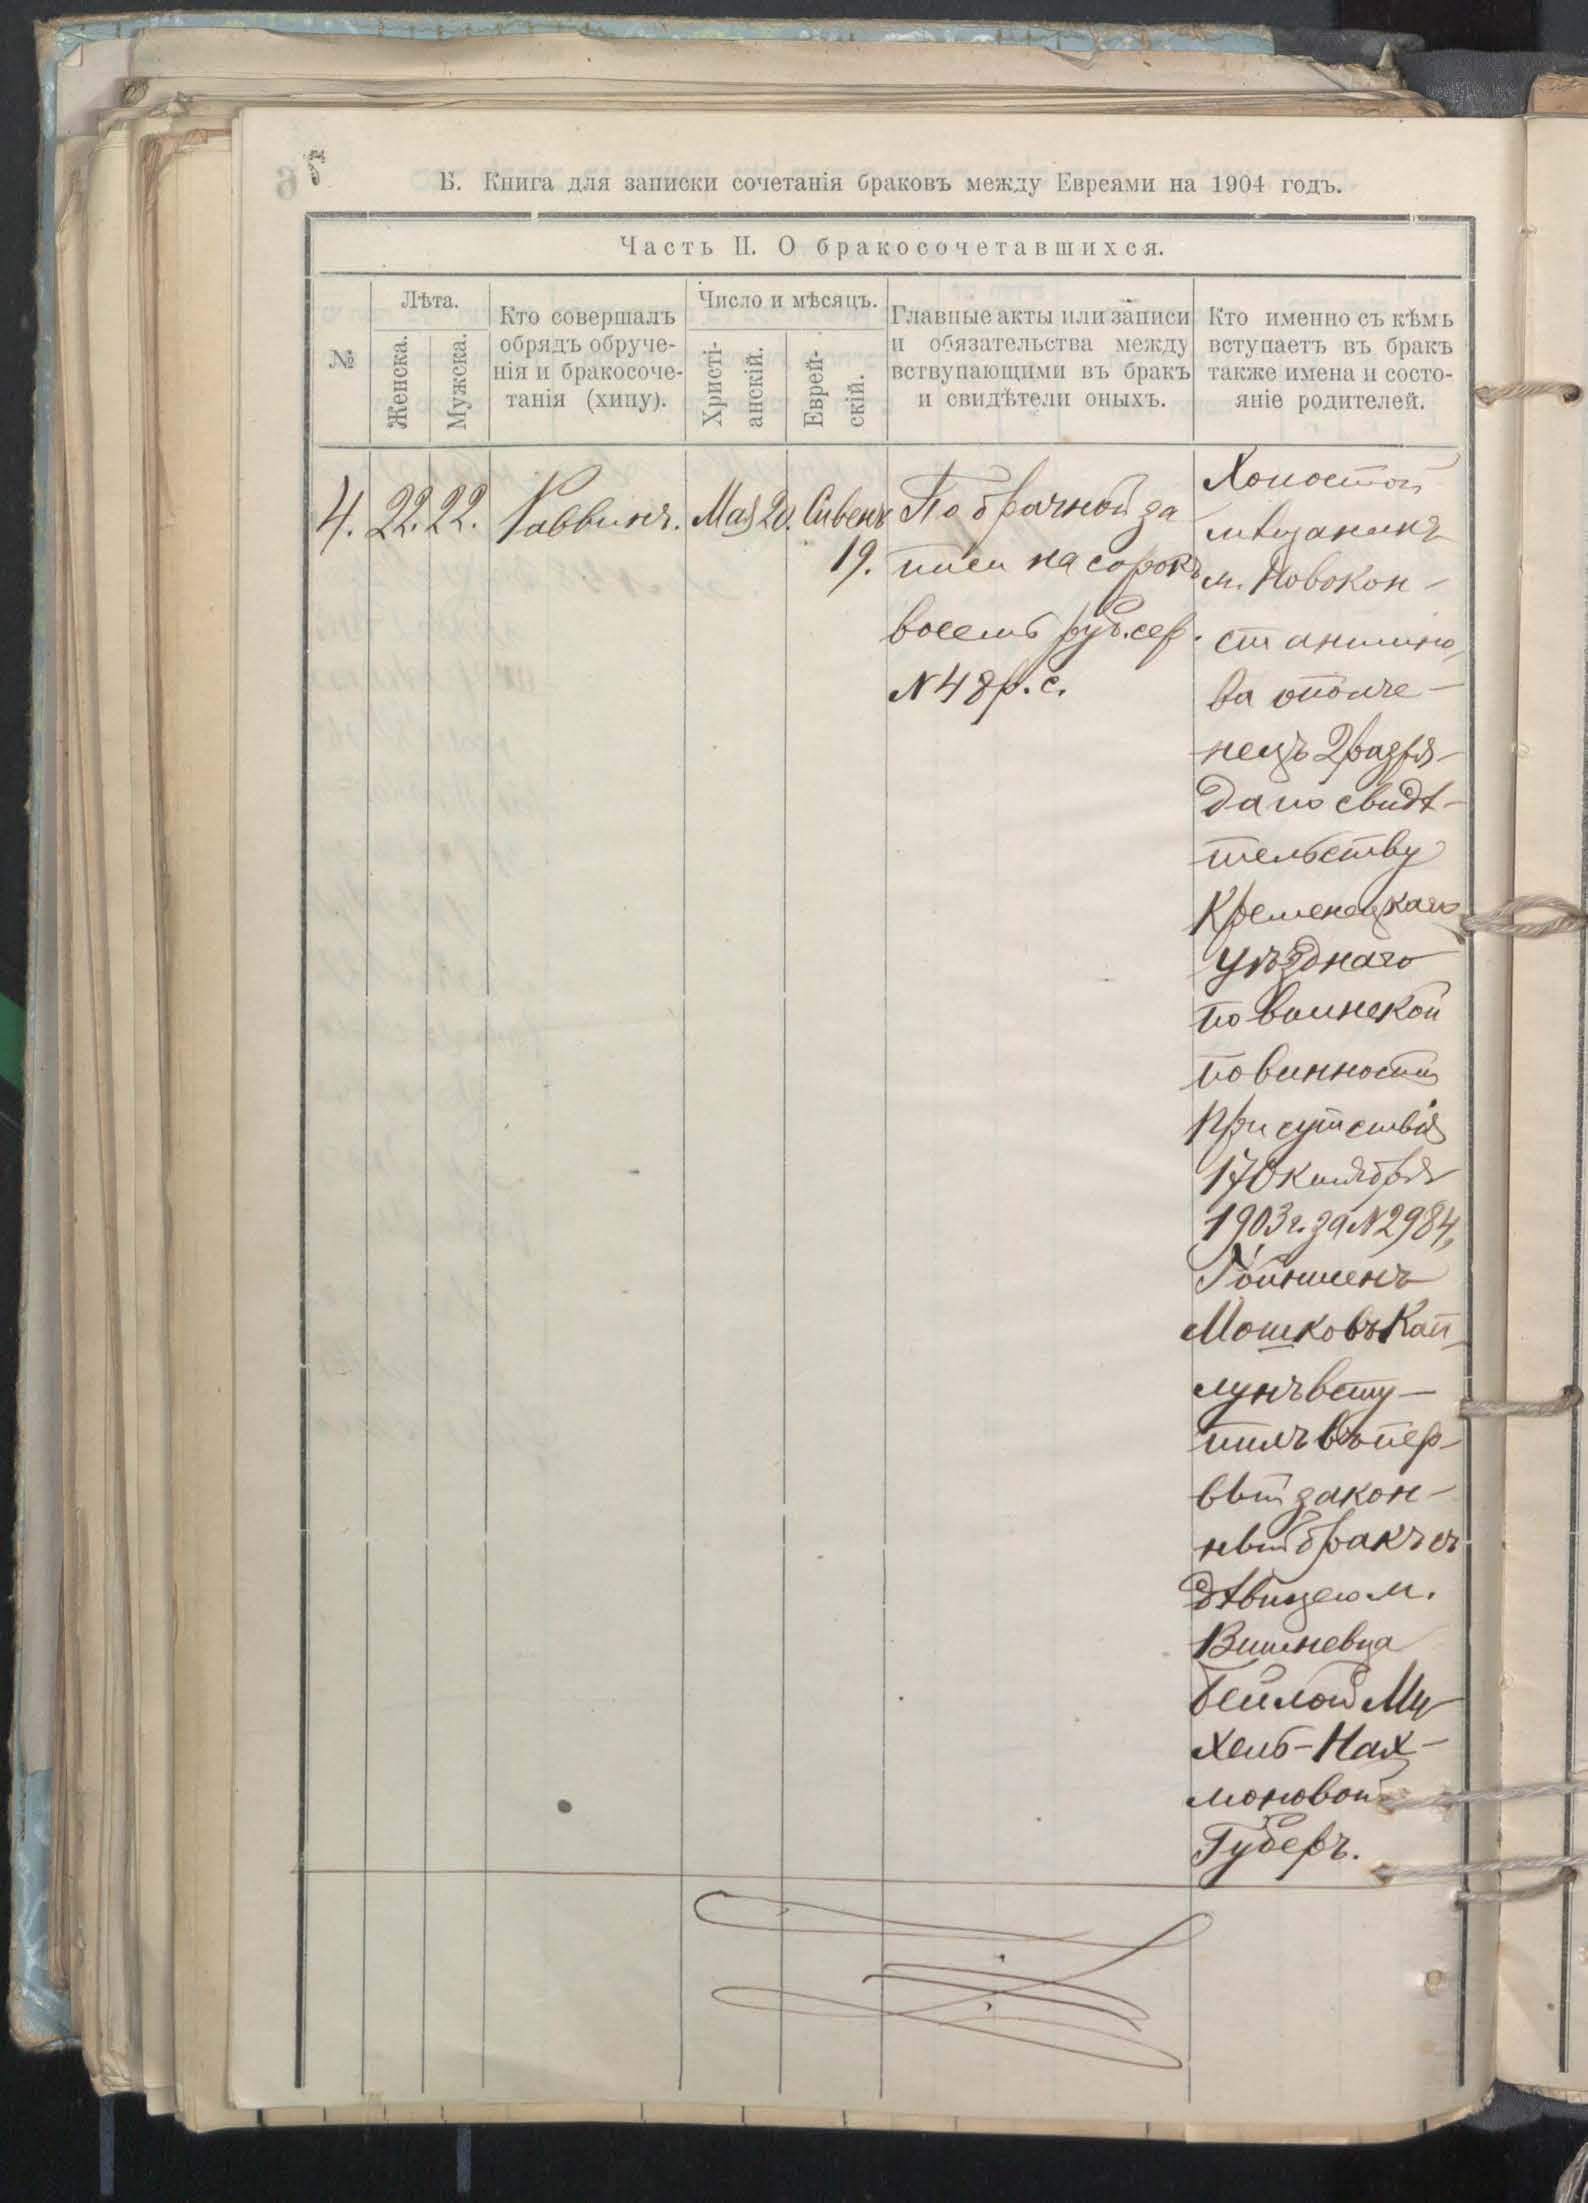 Б. Книга для записки сочетанія браковъ между Евреями на 1904 годъ.
Часть II. О бракосочетавшихся.
№
Лѣта.
Женска.
Мужска.
Кто совершалъ
обрядъ обруче-
нія и бракосоче-
танія (хипу).
Число и мѣсяцъ.
Христі-
анскій.
Еврей-
скій.
Главные акты или записи
и обязательства между
вствупающими въ бракъ
и свидѣтели оныхъ.
Кто именно съ кѣмъ
вступаетъ въ бракъ
также имена и состо-
яніе родителей.
4.
22.
22.
Раввинъ.
Мая 20.
Сивенъ
19.
По брачной за
писи на сорокъ
восемь руб. сер.
№ 48 р. с.
Холостой
мѣщанинъ
м. Новокон-
стантино-
ва ополче-
нецъ 2 разря-
да по свидѣ-
тельству
Кременецкаго
уѣзднаго
по воинской
повинности
Присутствія
17 Октября
1903 г. за № 2984,
Гойншенъ
Мошковъ Кап-
лунъ всту-
пилъ въ пер-
вый закон-
ный бракъ съ
дѣвицею м.
Вишневца
Бейлой Ми-
хель-Нах-
моновой
Губеръ.